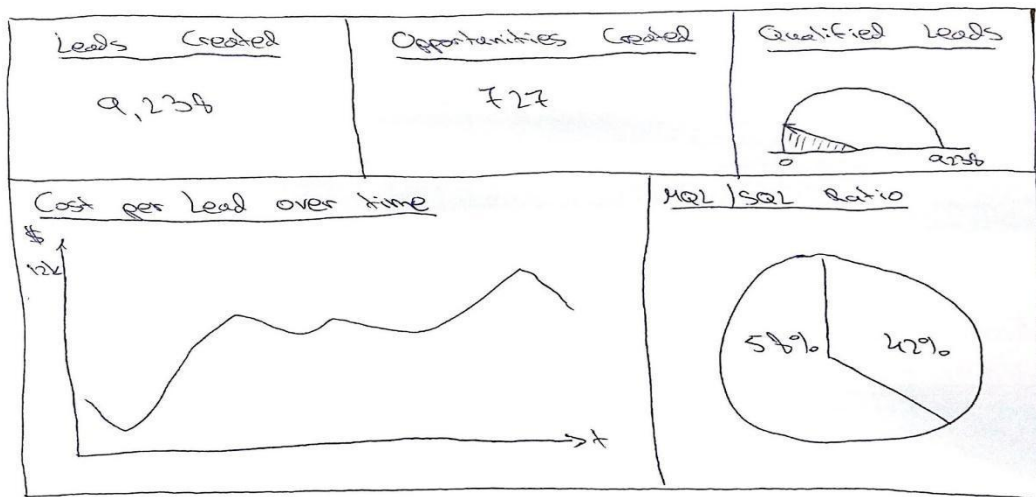 Leads Created
9,238
Opportunities Created
727
Qualified Leads
0
9238
Cost per Lead over time
$
12k
t
MQL/SQL Ratio
58%
42%